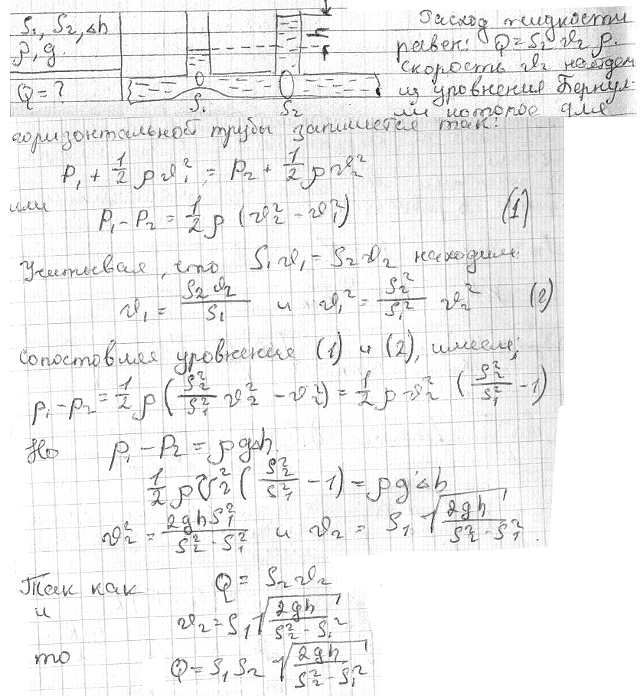 S₁, S₂, Δh
ρ, g.
Q = ?
h
S₁ S₂
Расход жидкости
равен: Q = S₂ v₂ ρ.
скорость v₂ найдем
из уравнения Бернул-
ли которое для
горизонтальной трубы запишется так:
P₁ + 1/2 ρ v₁² = P₂ + 1/2 ρ v₂²
или
P₁ - P₂ = 1/2 ρ (v₂² - v₁²) (1)
Учитывая, что S₁ v₁ = S₂ v₂ находим:
v₁ = S₂ v₂ / S₁ и v₁² = S₂² / S₁² v₂² (2)
Сопоставляя уровнения (1) и (2), имеем;
p₁ - p₂ = 1/2 ρ (S₂² / S₁² v₂² - v₂²) = 1/2 ρ v₂² (S₂² / S₁² - 1)
Но p₁ - P₂ = ρgΔh.
1/2 ρ v₂² (S₂² / S₁² - 1) = ρgΔh
v₂² = 2ghS₁² / S₂² - S₁² и v₂ = S₁ √(2gh / S₂² - S₁²).
Так как Q = S₂ v₂
и v₂ = S₁ √(2gh / S₂² - S₁²)
то Q = S₁ S₂ √(2gh / S₂² - S₁²)